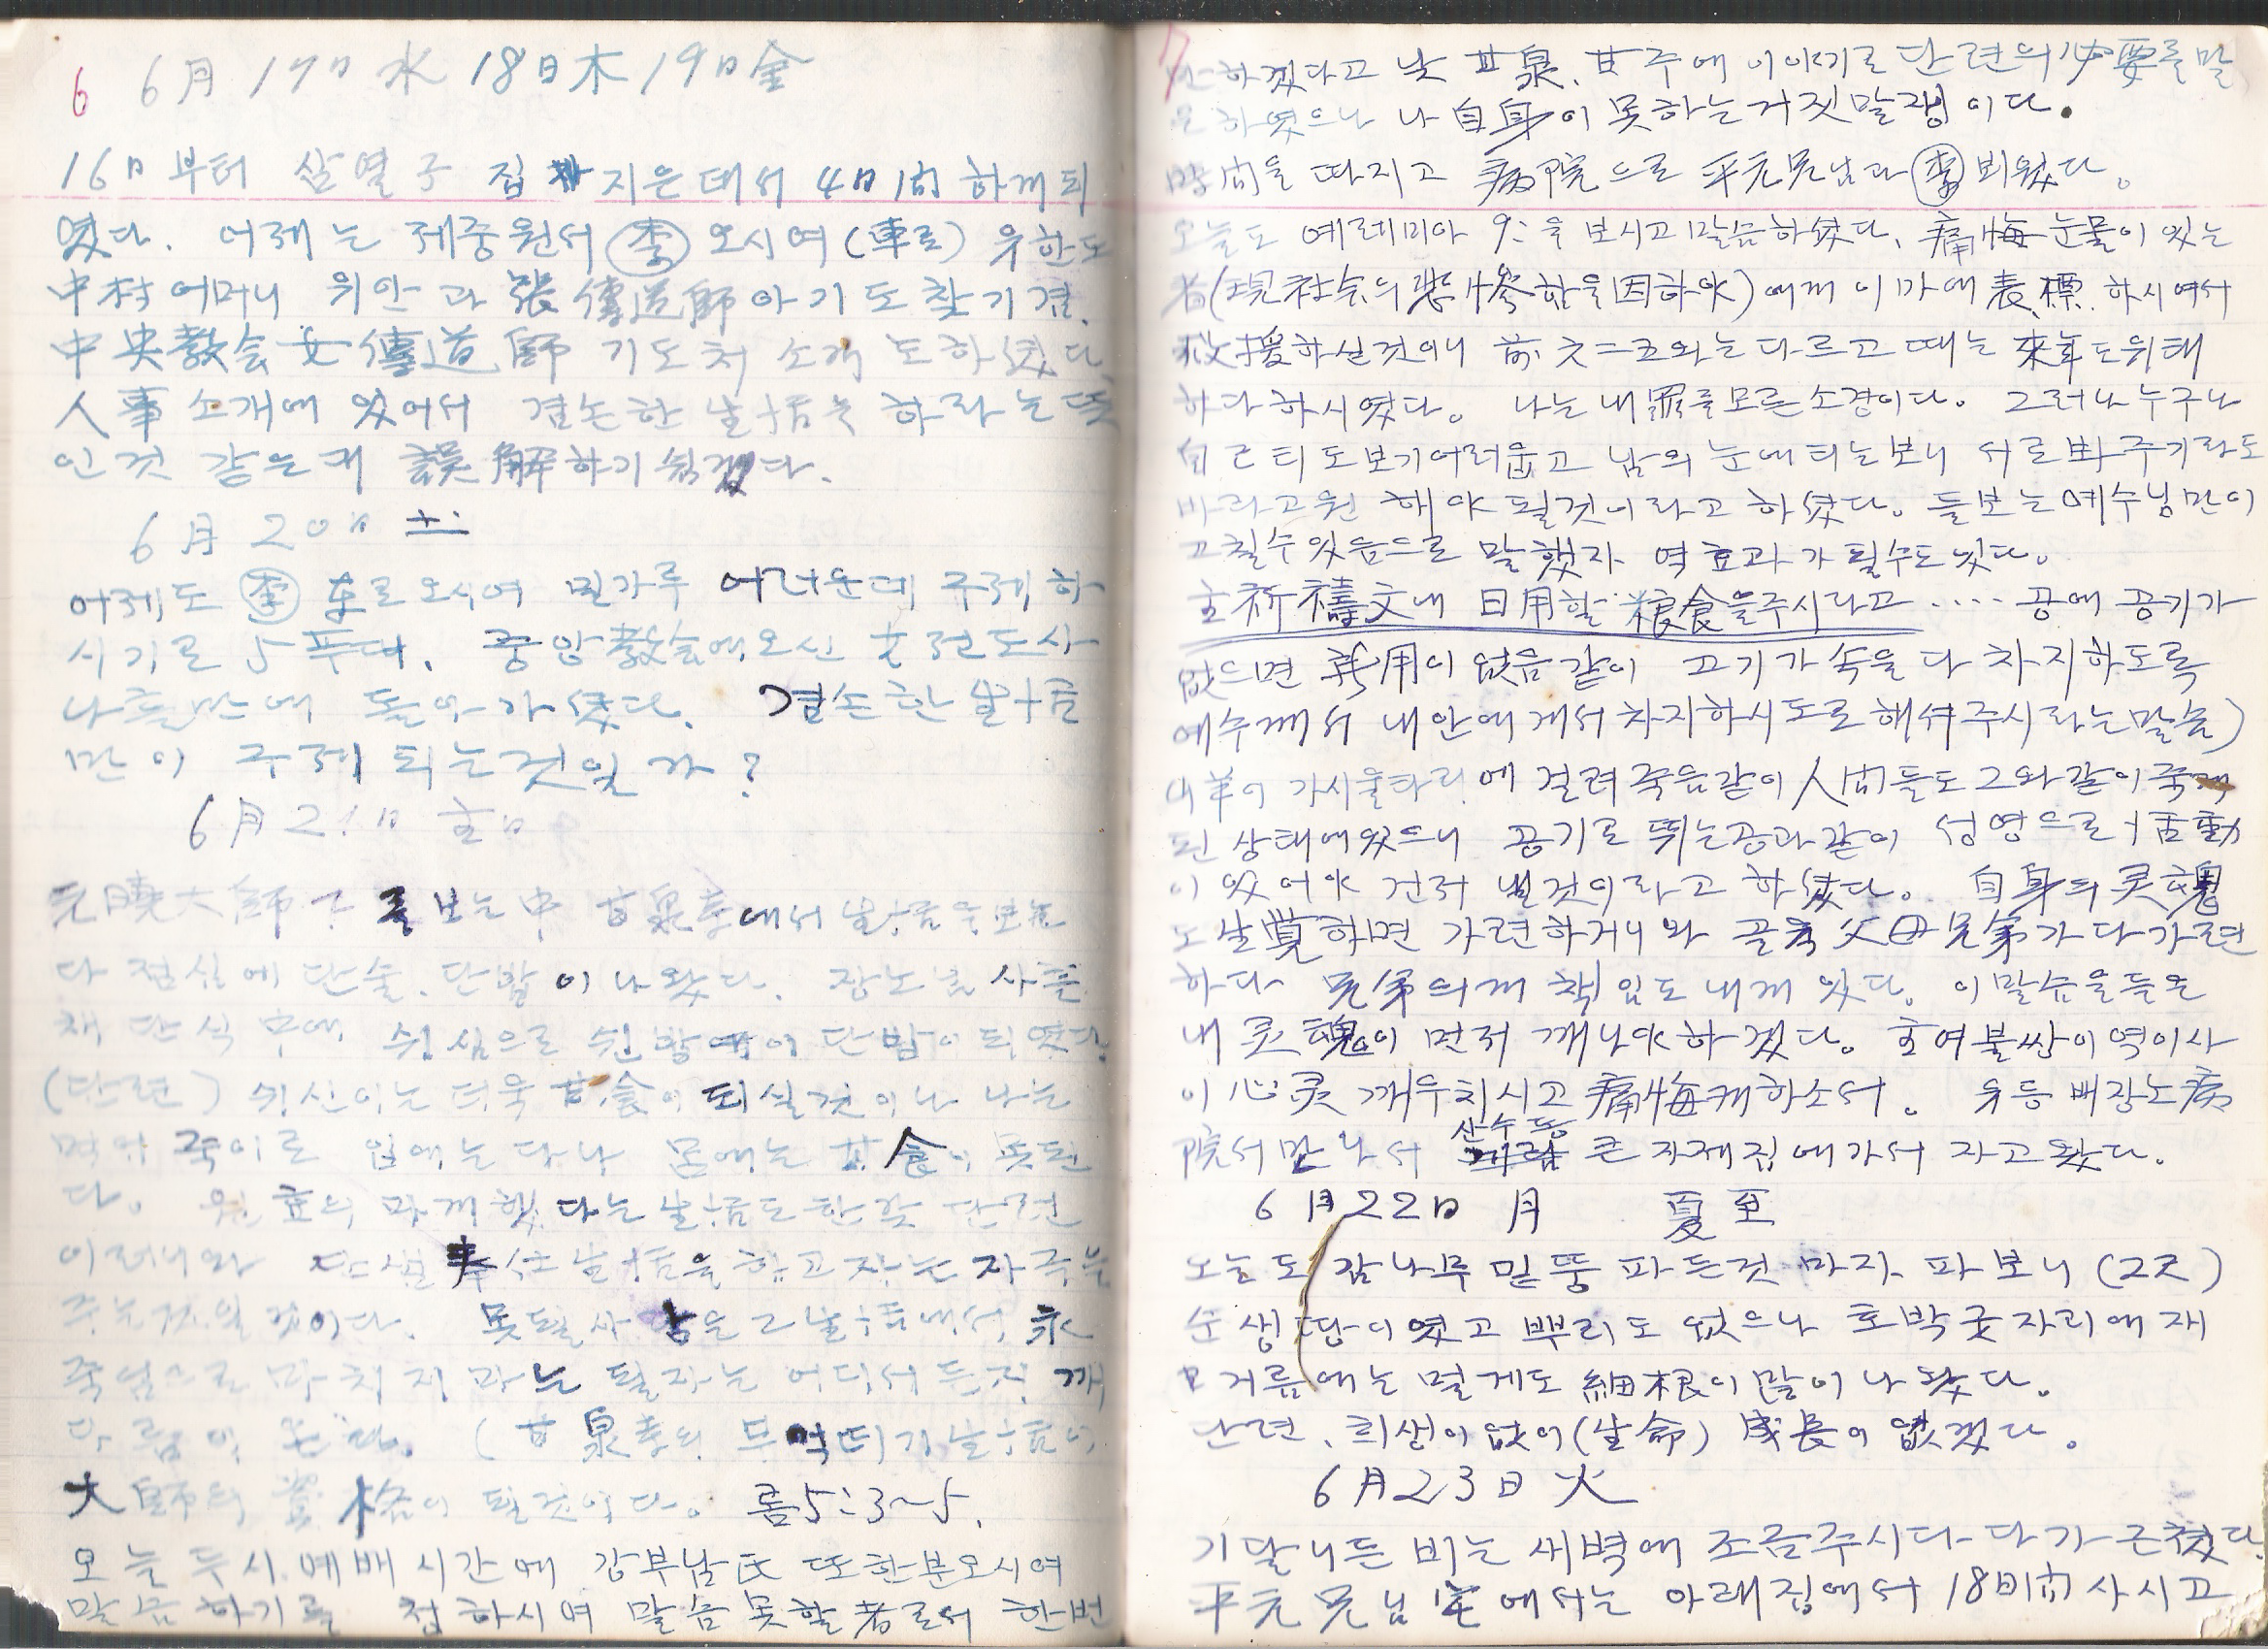 6 6月 17日 水 18日 木 19日 金
16日 부터 삼열子 집 지은데서 4日間 하게 되
였다. 어제는 제중원서 李 오시여 (車로) 유한도
中村 어머니 위안과 張傳道師 아기도 찾기겸.
中央敎会 女傳道師 기도처 소개도 하셨다
人事 소개에 있어서 겸손한 生活을 하라는 뜻
인것 같은데 誤解하기 쉽겠다.
6月 20日 土
어제도 李 車로 오시여 밀가루 어려운데 구제하
시기로 5푸대. 중앙敎会에 오신 女전도사
나흘만에 돌아가셨다. 겸손한 生活
만이 구제 되는것일가?
6月 21日 主日
元曉大師 를 보는中 甘泉寺에서 生活을
다 점심에 단술. 단밥이 나왔다. 장노님 사흘
채 단식 中에 쉬심으로 쉰밥 단밥이 되였다.
(단련) 쉬신이는 더욱 甘食이 되실것이나 나는
죽이로 입에는 다나 몸에는 甘食이 못된
다. 원효의 하게했다는 生活도 한갓 단련
이려니와 生活을 하고자는 자극을
주는것일 것이다. 못될사람은 그 生活에서 永
죽엄으로 마치지마는 될자는 어디서든지 깨
다름이 온다. (甘泉寺의 부엌띠기 生活이
大師의 資格이 될것이다. 롬5:3~5.
오늘 두시 예배 시간에 강부남氏 또한분 오시여
말씀하기를 청하시여 말씀 못할者로서 한번
7 하겠다고 낮 甘泉. 甘주에 이야기로 단련의 必要를 말
은 하였으나 나 自身이 못하는 거짓말쟁이다.
時間을 따지고 病院으로 平元兄님과 李 뵈웠다.
오늘도 예레미아 9:을 보시고 말씀하셨다. 痛悔 눈물이 있는
者(現社会의 悲慘함을 因하야)에게 이마에 表標 하시여서
救援하실것이니 前 六二五와는 다르고 때는 來年도 위태
하다 하시였다. 나는 내罪를 모른 소경이다. 그러나 누구나
自己 티도 보기 어려웁고 남의 눈에 티는 보니 서로 봐주기라도
바라고 원해야 될것이라고 하셨다. 들보는 예수님만이
고칠수 있음으로 말했자 역효과가 될수도 있다.
主祈禱文내 日用할 粮食을 주시라고 .... 공에 공기가
없으면 所用이 없음같이 고기가 속을 다 차지하도록
예수께서 내안에 게서 차지하시도로 해셔주시라는 말씀)
내羊이 가시울타리에 걸려 죽음같이 人間들도 그와같이 죽게
된 상태에 있으니 공기로 뛰는 공과같이 성영으로 活動
이 있어야 건저 낼것이라고 하셨다. 自身의 灵魂
도 生覺하면 가련하거니와 골육 父母兄弟가 다 가련
하다 兄弟의게 책임도 내게 있다. 이 말씀을 들은
내 灵魂이 먼저 깨나야 하겠다. 主여 불쌍이 역이사
이 心灵 깨우치시고 痛悔케 하소서. 유등 배장노 病
院서 만나서 산수동 큰 자제집에 가서 자고 왔다.
6月 22日 月 夏至
오늘도 감나무 밑뚱 파든것 마자 파보니 (2尺)
순 생땅이였고 뿌리도 없으나 호박굿 자리에 재
거름에는 멀게도 細根이 많이 나왔다.
단련, 희생이 없이 (生命) 成長이 없겠다.
6月 23日 火
기달니든 비는 새벽에 조금 주시다-다가 근첬다.
平元兄님宅에서는 아래집에서 18日間 사시고